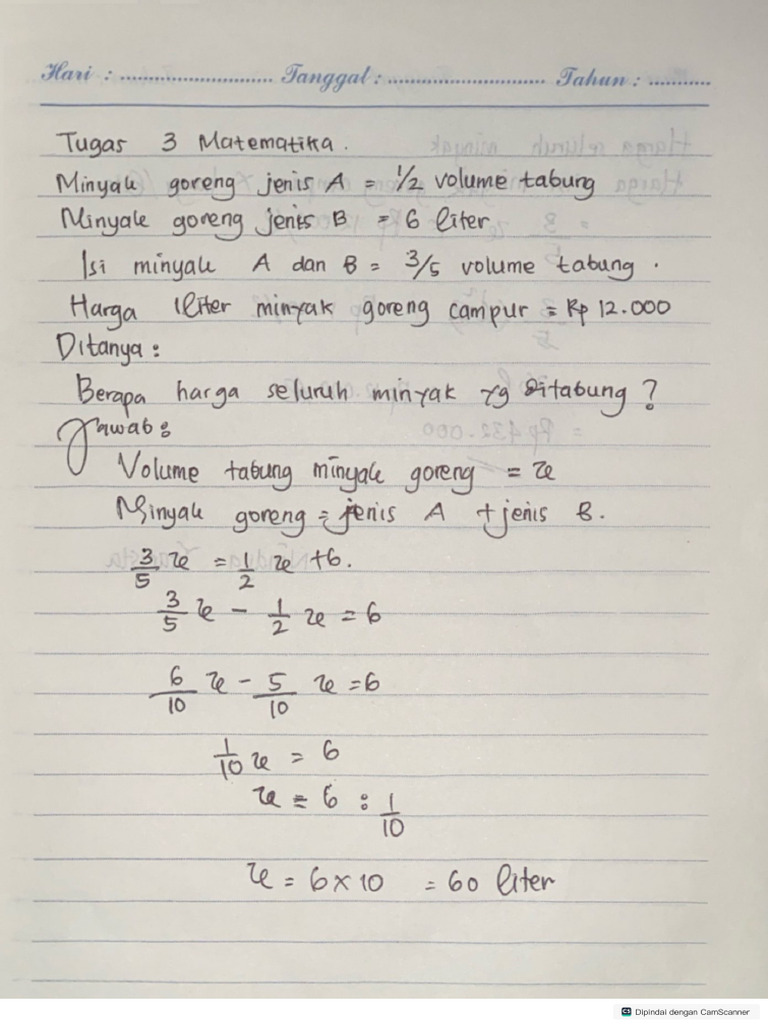 Hari : .......................... Tanggal : ........................... Tahun : ...........
Tugas 3 Matematika.
Minyak goreng jenis A = 1/2 volume tabung
Minyak goreng jenis B = 6 liter
Isi minyak A dan B = 3/5 volume tabung.
Harga 1liter minyak goreng campur = Rp 12.000
Ditanya :
Berapa harga seluruh minyak yg ditabung ?
Jawab :
Volume tabung minyak goreng = x
Minyak goreng = jenis A + jenis B.
3/5 x = 1/2 x + 6.
3/5 x - 1/2 x = 6
6/10 x - 5/10 x = 6
1/10 x = 6
x = 6 : 1/10
x = 6 x 10 = 60 liter
CS Dipindai dengan CamScanner